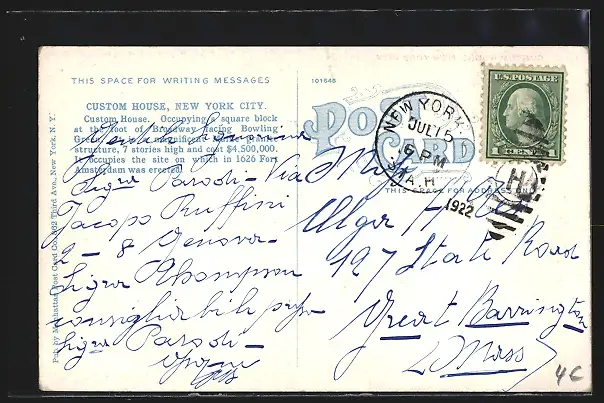 THIS SPACE FOR WRITING MESSAGES
101648
CUSTOM HOUSE, NEW YORK CITY.
Custom House. Occupying a square block
at the foot of Broadway facing Bowling
Green. A magnificent granite
structure, 7 stories high and cost $4,500,000.
It occupies the site on which in 1626 Fort
Amsterdam was erected.
Pub. by Manhattan Post Card Co. 382 Third Ave., New York, N. Y.
Gentile Signorina
Sigra Parodi - Via
Jacopo Ruffini
2 - 8 Genova -
Sigra Thompson
consigliabile
Sigra Parodi -
POST CARD
THIS SPACE FOR ADDRESS ONLY
U.S. POSTAGE
1 CENT 1
NEW YORK
JUL 15
6 PM
STA. H
1922
Miss
Alger
197 State Road
Great Barrington
Mass
4C